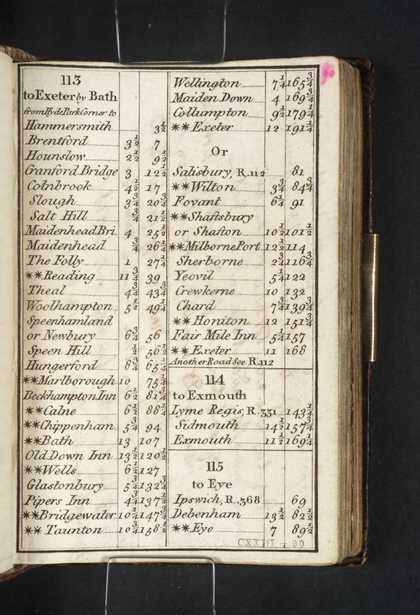 113
to Exeter by Bath
from Hyde Park Corner to
Hammersmith 3½
Brentford 3½ 7
Hounslow 2½ 9½
Cranford Bridge 3 12½
Colnbrook 4½ 17
Slough 3¾ 20¾
Salt Hill ¾ 21½
Maidenhead Bri. 4 25½
Maidenhead ¾ 26¼
The Folly 1 27¼
**Reading 11¾ 39
Theal 4¾ 43¾
Woolhampton 5½ 49¼
Speenhamland
or Newbury 6¾ 56
Speen Hill ½ 56½
Hungerford 8¾ 65¼
**Marlborough 10 75¼
Beckhampton Inn 6½ 81¾
**Calne 6½ 88¼
**Chippenham 5¾ 94
**Bath 13 107
Old Down Inn 13½ 120½
**Wells 6½ 127
Glastonbury 5¾ 132¾
Pipers Inn 4¾ 137½
**Bridgewater 10¼ 147¾
**Taunton 10¾ 158½
Wellington 7¼ 165¾
Maiden Down 4 169¾
Collumpton 9½ 179¼
**Exeter 12 191¼
Or
Salisbury, R.112 81
**Wilton 3¾ 84¾
Fovant 6¼ 91
**Shaftsbury
or Shafton 10½ 101½
**Milborne Port 12½ 114
Sherborne 2¾ 116¾
Yeovil 5¼ 122
Crewkerne 10 132
Chard 7¾ 139¾
**Honiton 12 151¾
Fair Mile Inn 5¼ 157
**Exeter 11 168
Another Road See R.112
114
to Exmouth
Lyme Regis, R.331 143¼
Sidmouth 14½ 157¾
Exmouth 11½ 169¼
115
to Eye
Ipswich, R.368 69
Debenham 13½ 82½
**Eye 7 89½